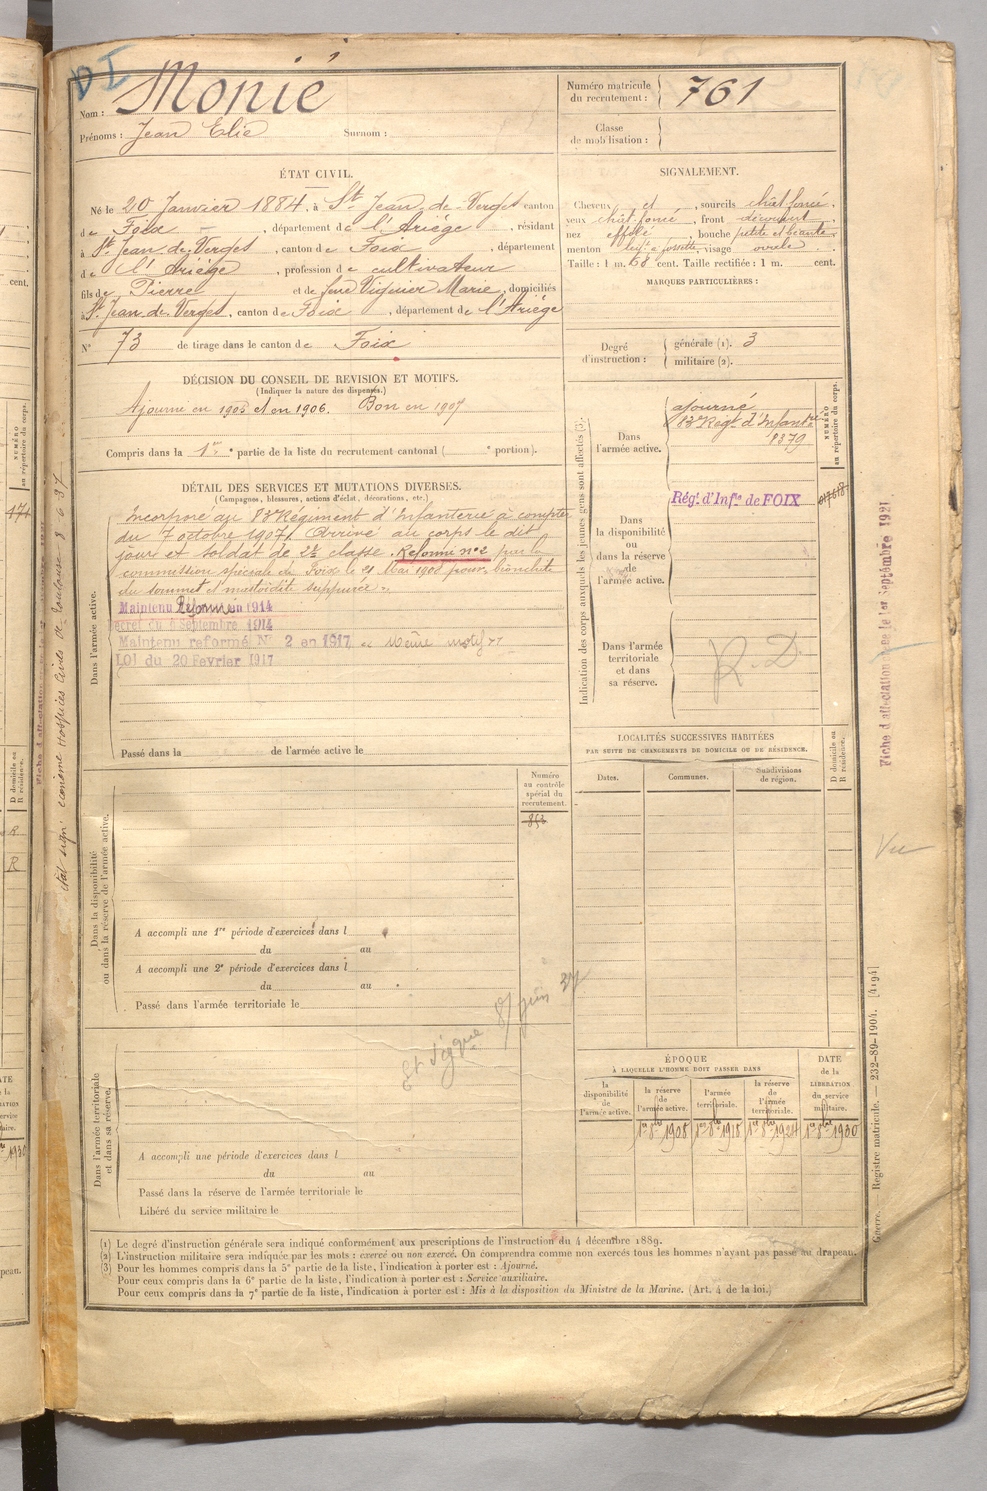 DI
Nom : Monié
Prénoms : Jean Elie Surnom :
Numéro matricule du recrutement : 761
Classe de mobilisation :
ÉTAT CIVIL.
Né le 20 Janvier 1884, à St Jean-de-Verges canton
de Foix, département de l'Ariége, résidant
à St Jean de Verges, canton de Foix, département
de l'Ariége, profession de cultivateur
fils de Pierre et de feue Viguier Marie, domiciliés
à St Jean de Verges, canton de Foix, département de l'Ariége
N° 73 de tirage dans le canton de Foix
SIGNALEMENT.
Cheveux et, sourcils chât. foncé,
yeux chât. foncé, front découvert,
nez effilé, bouche petite et béante,
menton à fossette, visage ovale
Taille : 1 m. 68 cent. Taille rectifiée : 1 m. cent.
MARQUES PARTICULIÈRES :
Degré d'instruction : générale (1). 3
militaire (2).
DÉCISION DU CONSEIL DE REVISION ET MOTIFS.
(Indiquer la nature des dispenses.)
Ajourné en 1905 et en 1906. Bon en 1907
Compris dans la 1re partie de la liste du recrutement cantonal ( e portion).
DÉTAIL DES SERVICES ET MUTATIONS DIVERSES.
(Campagnes, blessures, actions d'éclat, décorations, etc.)
Dans l'armée active.
Incorporé au 83e Régiment d'Infanterie à compter
du 7 octobre 1907. Arrivé au corps le dit
jour et soldat de 2e classe. Réformé n°2 par la
commission spéciale de Foix le 21 Mai 1908 pour bronchite
du sommet et mastoïdite suppurée.
Maintenu Réformé en 1914
écret du 9 Septembre 1914
Maintenu reformé N° 2 en 1917 Même motif
LOI du 20 Fevrier 1917
Passé dans la de l'armée active le
Indication des corps auxquels les jeunes gens sont affectés (3).
NUMÉRO au répertoire du corps.
Dans l'armée active.
ajourné
83e Régt d'Infanterie
8379
Dans la disponibilité ou dans la réserve de l'armée active.
Régt. d'Infie de FOIX
Dans l'armée territoriale et dans sa réserve.
R. D.
LOCALITÉS SUCCESSIVES HABITÉES
PAR SUITE DE CHANGEMENTS DE DOMICILE OU DE RÉSIDENCE.
Dates. Communes. Subdivisions de région. D domicile ou R résidence.
Dans la disponibilité ou dans la réserve de l'armée active.
Numéro au contrôle spécial du recrutement.
A accompli une 1re période d'exercices dans l
du au
A accompli une 2e période d'exercices dans l
du au
Passé dans l'armée territoriale le
8 juin 37
Dans l'armée territoriale et dans sa réserve.
A accompli une période d'exercices dans l
du au
Passé dans la réserve de l'armée territoriale le
Libéré du service militaire le
ÉPOQUE
À LAQUELLE L'HOMME DOIT PASSER DANS
la disponibilité de l'armée active.
la réserve de l'armée active. 1er 8bre 1908
l'armée territoriale. 1er 8bre 1918
la réserve de l'armée territoriale. 1er 8bre 1924
DATE de la LIBÉRATION du service militaire. 1er 8bre 1930
(1) Le degré d'instruction générale sera indiqué conformément aux prescriptions de l'instruction du 4 décembre 1889.
(2) L'instruction militaire sera indiquée par les mots : exercé ou non exercé. On comprendra comme non exercés tous les hommes n'ayant pas passé au drapeau.
(3) Pour les hommes compris dans la 5e partie de la liste, l'indication à porter est : Ajourné.
Pour ceux compris dans la 6e partie de la liste, l'indication à porter est : Service auxiliaire.
Pour ceux compris dans la 7e partie de la liste, l'indication à porter est : Mis à la disposition du Ministre de la Marine. (Art. 4 de la loi.)
Fiche d'affectation le 1er Septembre 1921
Vu
Guerre. Registre matricule. — 232-89-1904. [4194]
économe Hospices Civils de Toulouse 8 6 37